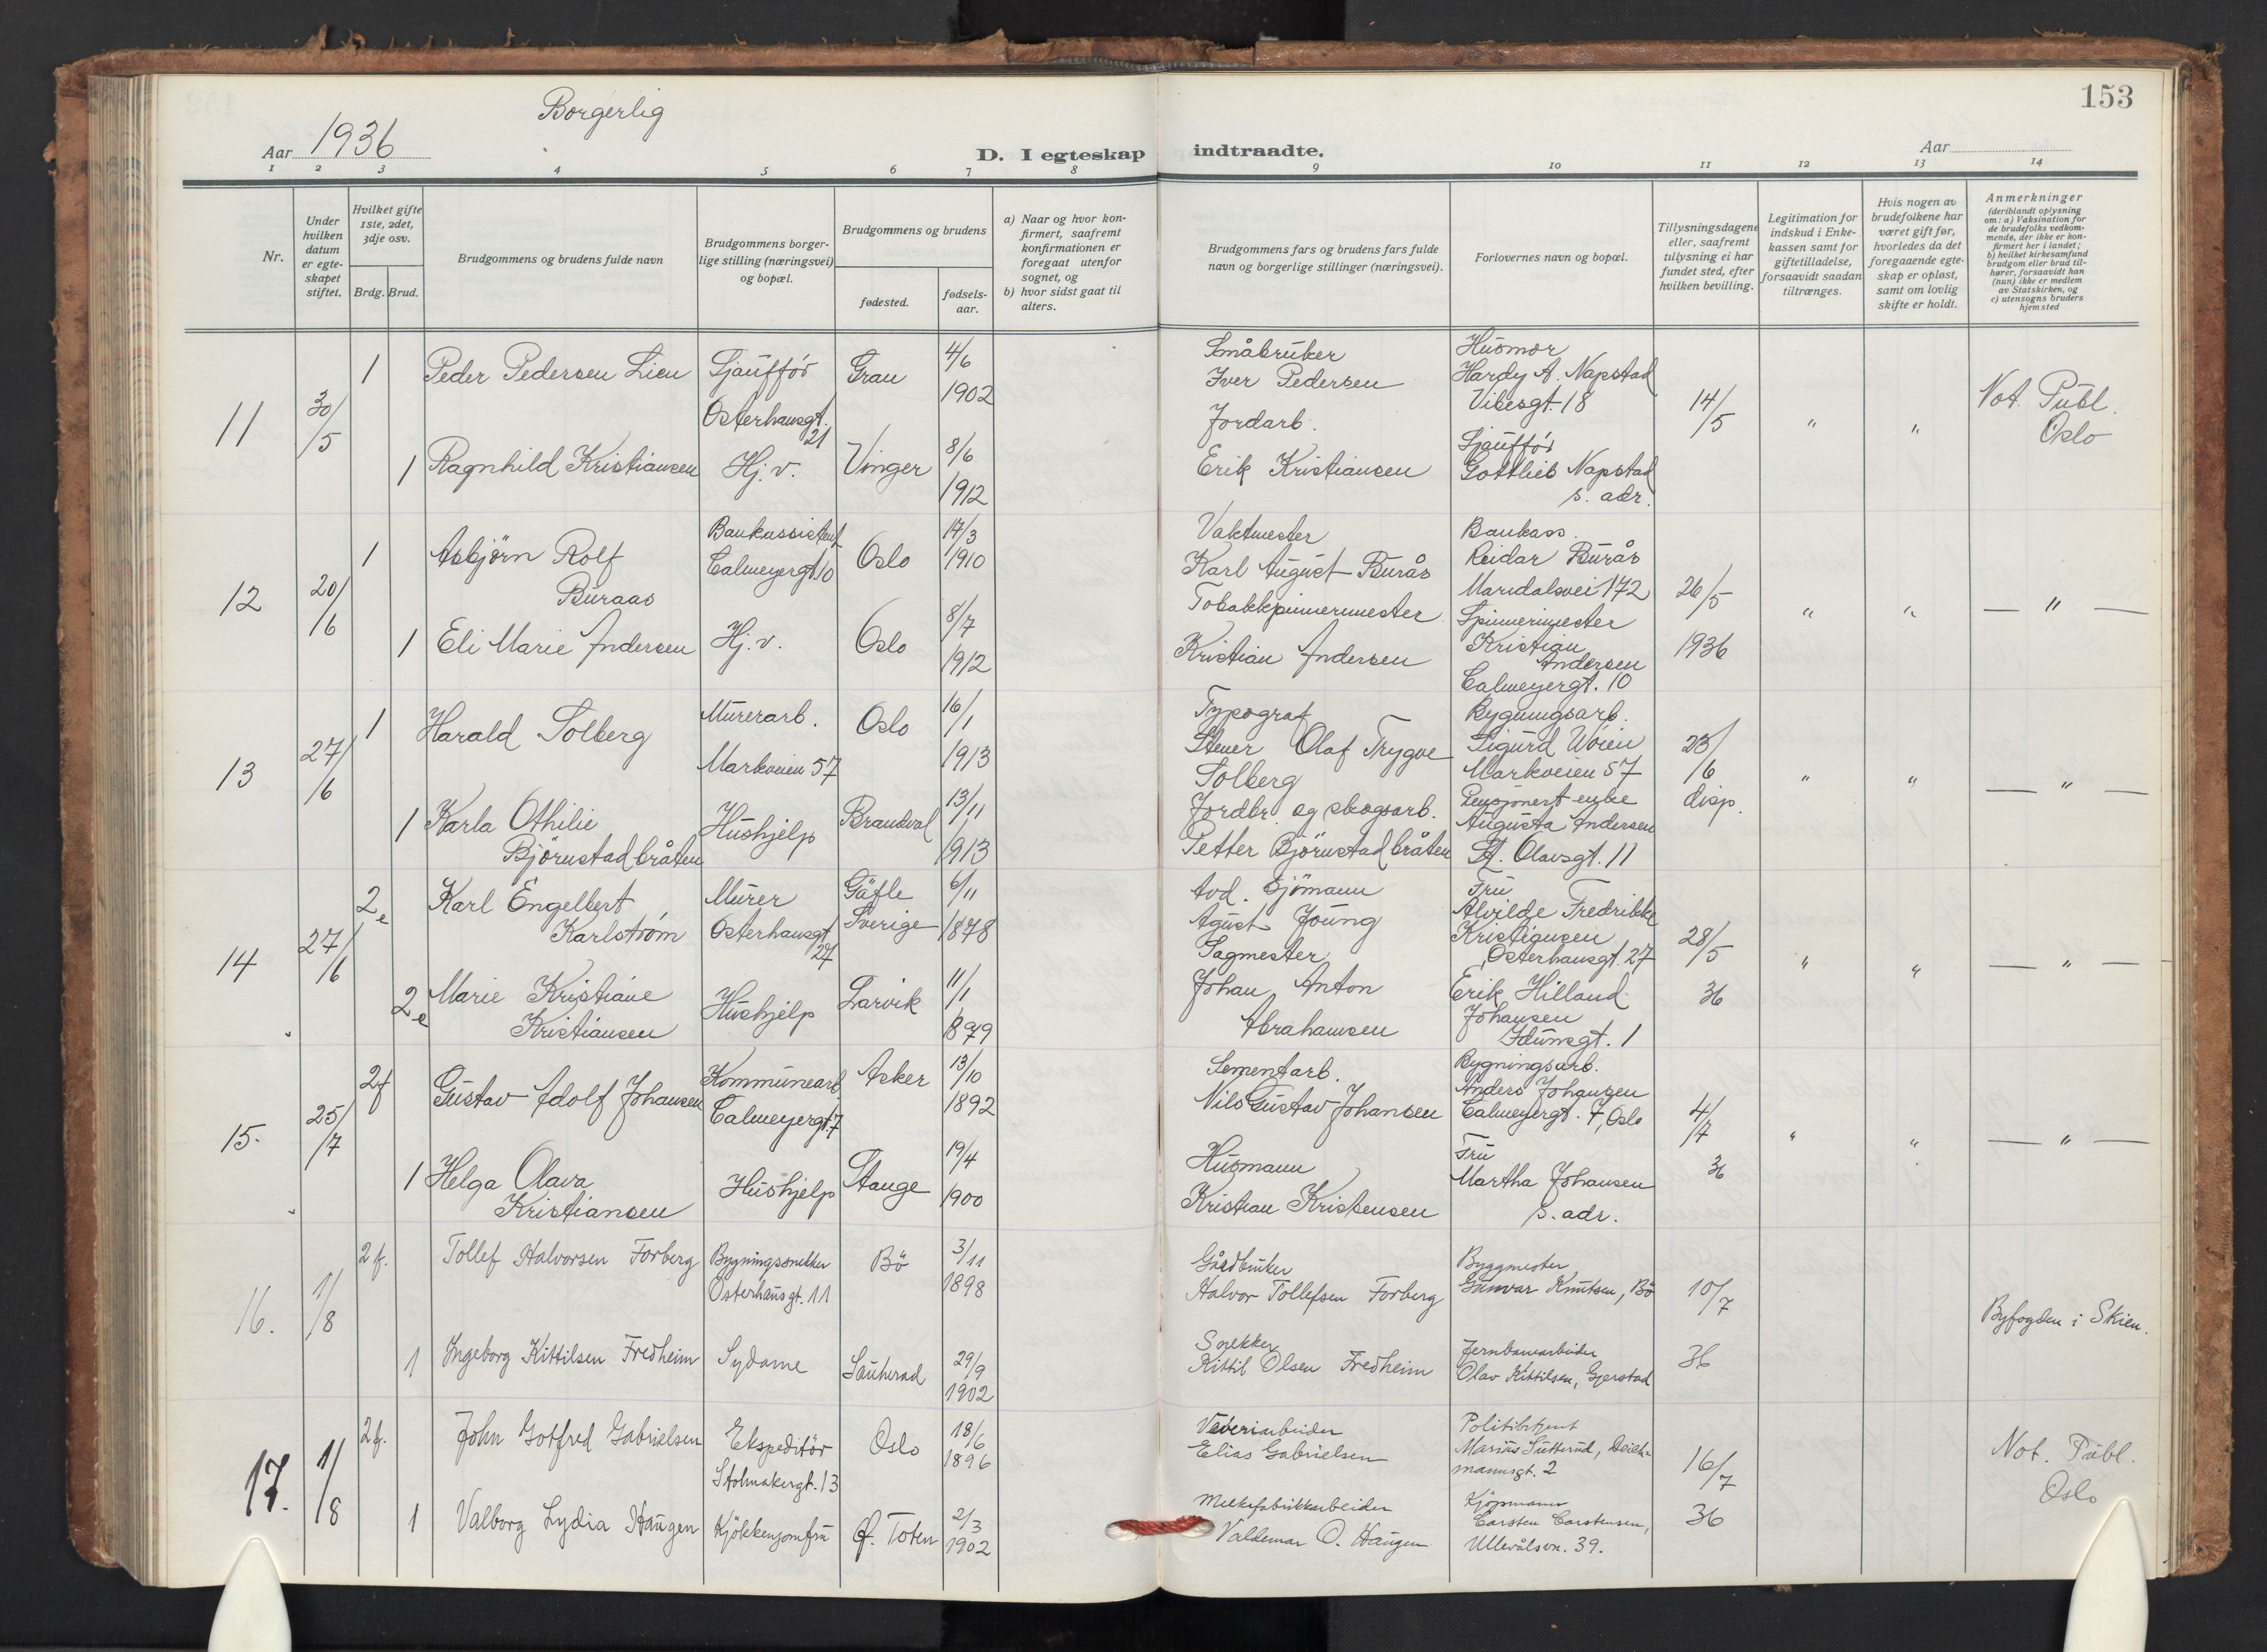 153
Borgerlig
Aar 1936
D. I egteskap indtraadte.
Aar
1 2 3 4 5 6 7 8 9 10 11 12 13 14
Nr.
Under hvilken datum er egte-skapet stiftet.
Hvilket gifte 1ste, 2det, 3dje osv.
Brdg. Brud.
Brudgommens og brudens fulde navn
Brudgommens borger-lige stilling (næringsvei) og bopæl.
Brudgommens og brudens
fødested.
fødsels-aar.
a) Naar og hvor kon-firmert, saafremt konfirmationen er foregaat utenfor sognet, og
b) hvor sidst gaat til alters.
Brudgommens fars og brudens fars fulde navn og borgerlige stillinger (næringsvei).
Forlovernes navn og bopæl.
Tillysningsdagene eller, saafremt tillysning ei har fundet sted, efter hvilken bevilling.
Legitimation for indskud i Enke-kassen samt for giftetilladelse, forsaavidt saadan tiltrænges.
Hvis nogen av brudefolkene har været gift før, hvorledes da det foregaaende egte-skap er opløst, samt om lovlig skifte er holdt.
Anmerkninger
(deriblandt oplysning om: a) Vaksination for de brudefolks vedkom-mende, der ikke er kon-firmert her i landet; b) hvilket kirkesamfund brudgom eller brud til-hører, forsaavidt han (hun) ikke er medlem av Statskirken, og c) utensogns bruders hjemsted
11
30/5
1
Peder Pedersen Lien
Sjauffør
Osterhausgt. 21
Grau
4/6 1902
Småbruker
Iver Pedersen
Husmor
Hardy A. Napstad
Vibesgt. 18
14/5
"
"
Not. Publ.
Oslo
1
Ragnhild Kristiansen
Hj. v.
Vinger
8/6 1912
Jordarb.
Erik Kristiansen
Sjauffør
Gottlieb Napstad
s. adr.
12
20/6
1
Asbjörn Rolf
Buraas
Bankassistent
Calmeyergt. 10
Oslo
17/3 1910
Vaktmester
Karl August Burås
Bankass.
Reidar Burås
Maridalsvei 172
26/5
1936
"
"
— " —
1
Eli Marie Andersen
Hj. v.
Oslo
8/7 1912
Tobakkspinnermester
Kristian Andersen
Spinnermester
Kristian
Andersen
Calmeyergt. 10
13
27/6
1
Harald Solberg
Murerarb.
Markveien 57
Oslo
16/1 1913
Typograf
Olaf Trygve
Solberg
Bygningsarb.
Sigurd
Markveien 57
23/6
disp.
"
"
— " —
1
Karla Othilie
Björnstadbråten
Hushjelp
Brandval
13/11 1913
Jordbr. og skogsarb.
Petter Björnstadbråten
Pensjonert enke
Augusta Andersen
St. Olavsgt. 11
14
27/6
2 e
Karl Engelbert
Karlstrøm
Murer
Osterhausgt. 27
Gäfle
Sverige
6/11 1878
Avd. Sjömann
Agust Joung
Fru
Alvilde Fredrikke
Kristiansen
Osterhausgt. 27
28/5
36
"
"
— " —
2 e
Marie Kristiane
Kristiansen
Hushjelp
Larvik
11/1 1879
Sagmester
Johan Anton
Abrahamsen
Erik Hilland
Johansen
Idunsgt. 1
15.
25/7
2 f
Gustav Adolf Johansen
Kommunearb.
Calmeyergt. 7
Asker
13/10 1892
Sementarb.
Nils Gustav Johansen
Bygningsarb.
Anders Johansen
Calmeyergt. 7, Oslo
4/7
36
"
"
— " —
1
Helga Olava
Kristiansen
Hushjelp
Stange
19/4 1900
Husmann
Kristian Kristensen
Fru
Martha Johansen
s. adr.
16.
1/8
2 f.
Tollef Halvorsen Forberg
Bygningssnekker
Osterhausgt. 11
Bö
3/11 1898
Gårdbruker
Halvor Tollefsen Forberg
Byggmester
Gunvar Knutsen, Bö
10/7
36
Byfogden i Skien.
1
Ingeborg Kittilsen Fredheim
Sydame
Sauherad
29/9 1902
Snekker
Kittil Olsen Fredheim
Jernbanearbeider
Olav Kittilsen, Gjerstad
17.
1/8
2 f.
John Gotfred Gabrielsen
Ekspeditör
Stolmakergt. 13
Oslo
18/6 1896
Veveriarbeider
Elias Gabrielsen
Politibetjent
Marius Sutterud, Deich-
mannsgt. 2
16/7
36
Not. Publ.
Oslo
1
Valborg Lydia Haugen
Kjökkenjomfru
Ø. Toten
2/3 1902
Melkefabrikkarbeider
Valdemar O. Haugen
Kjöpmann
Carsten Carstensen,
Ullevålsvn. 39.